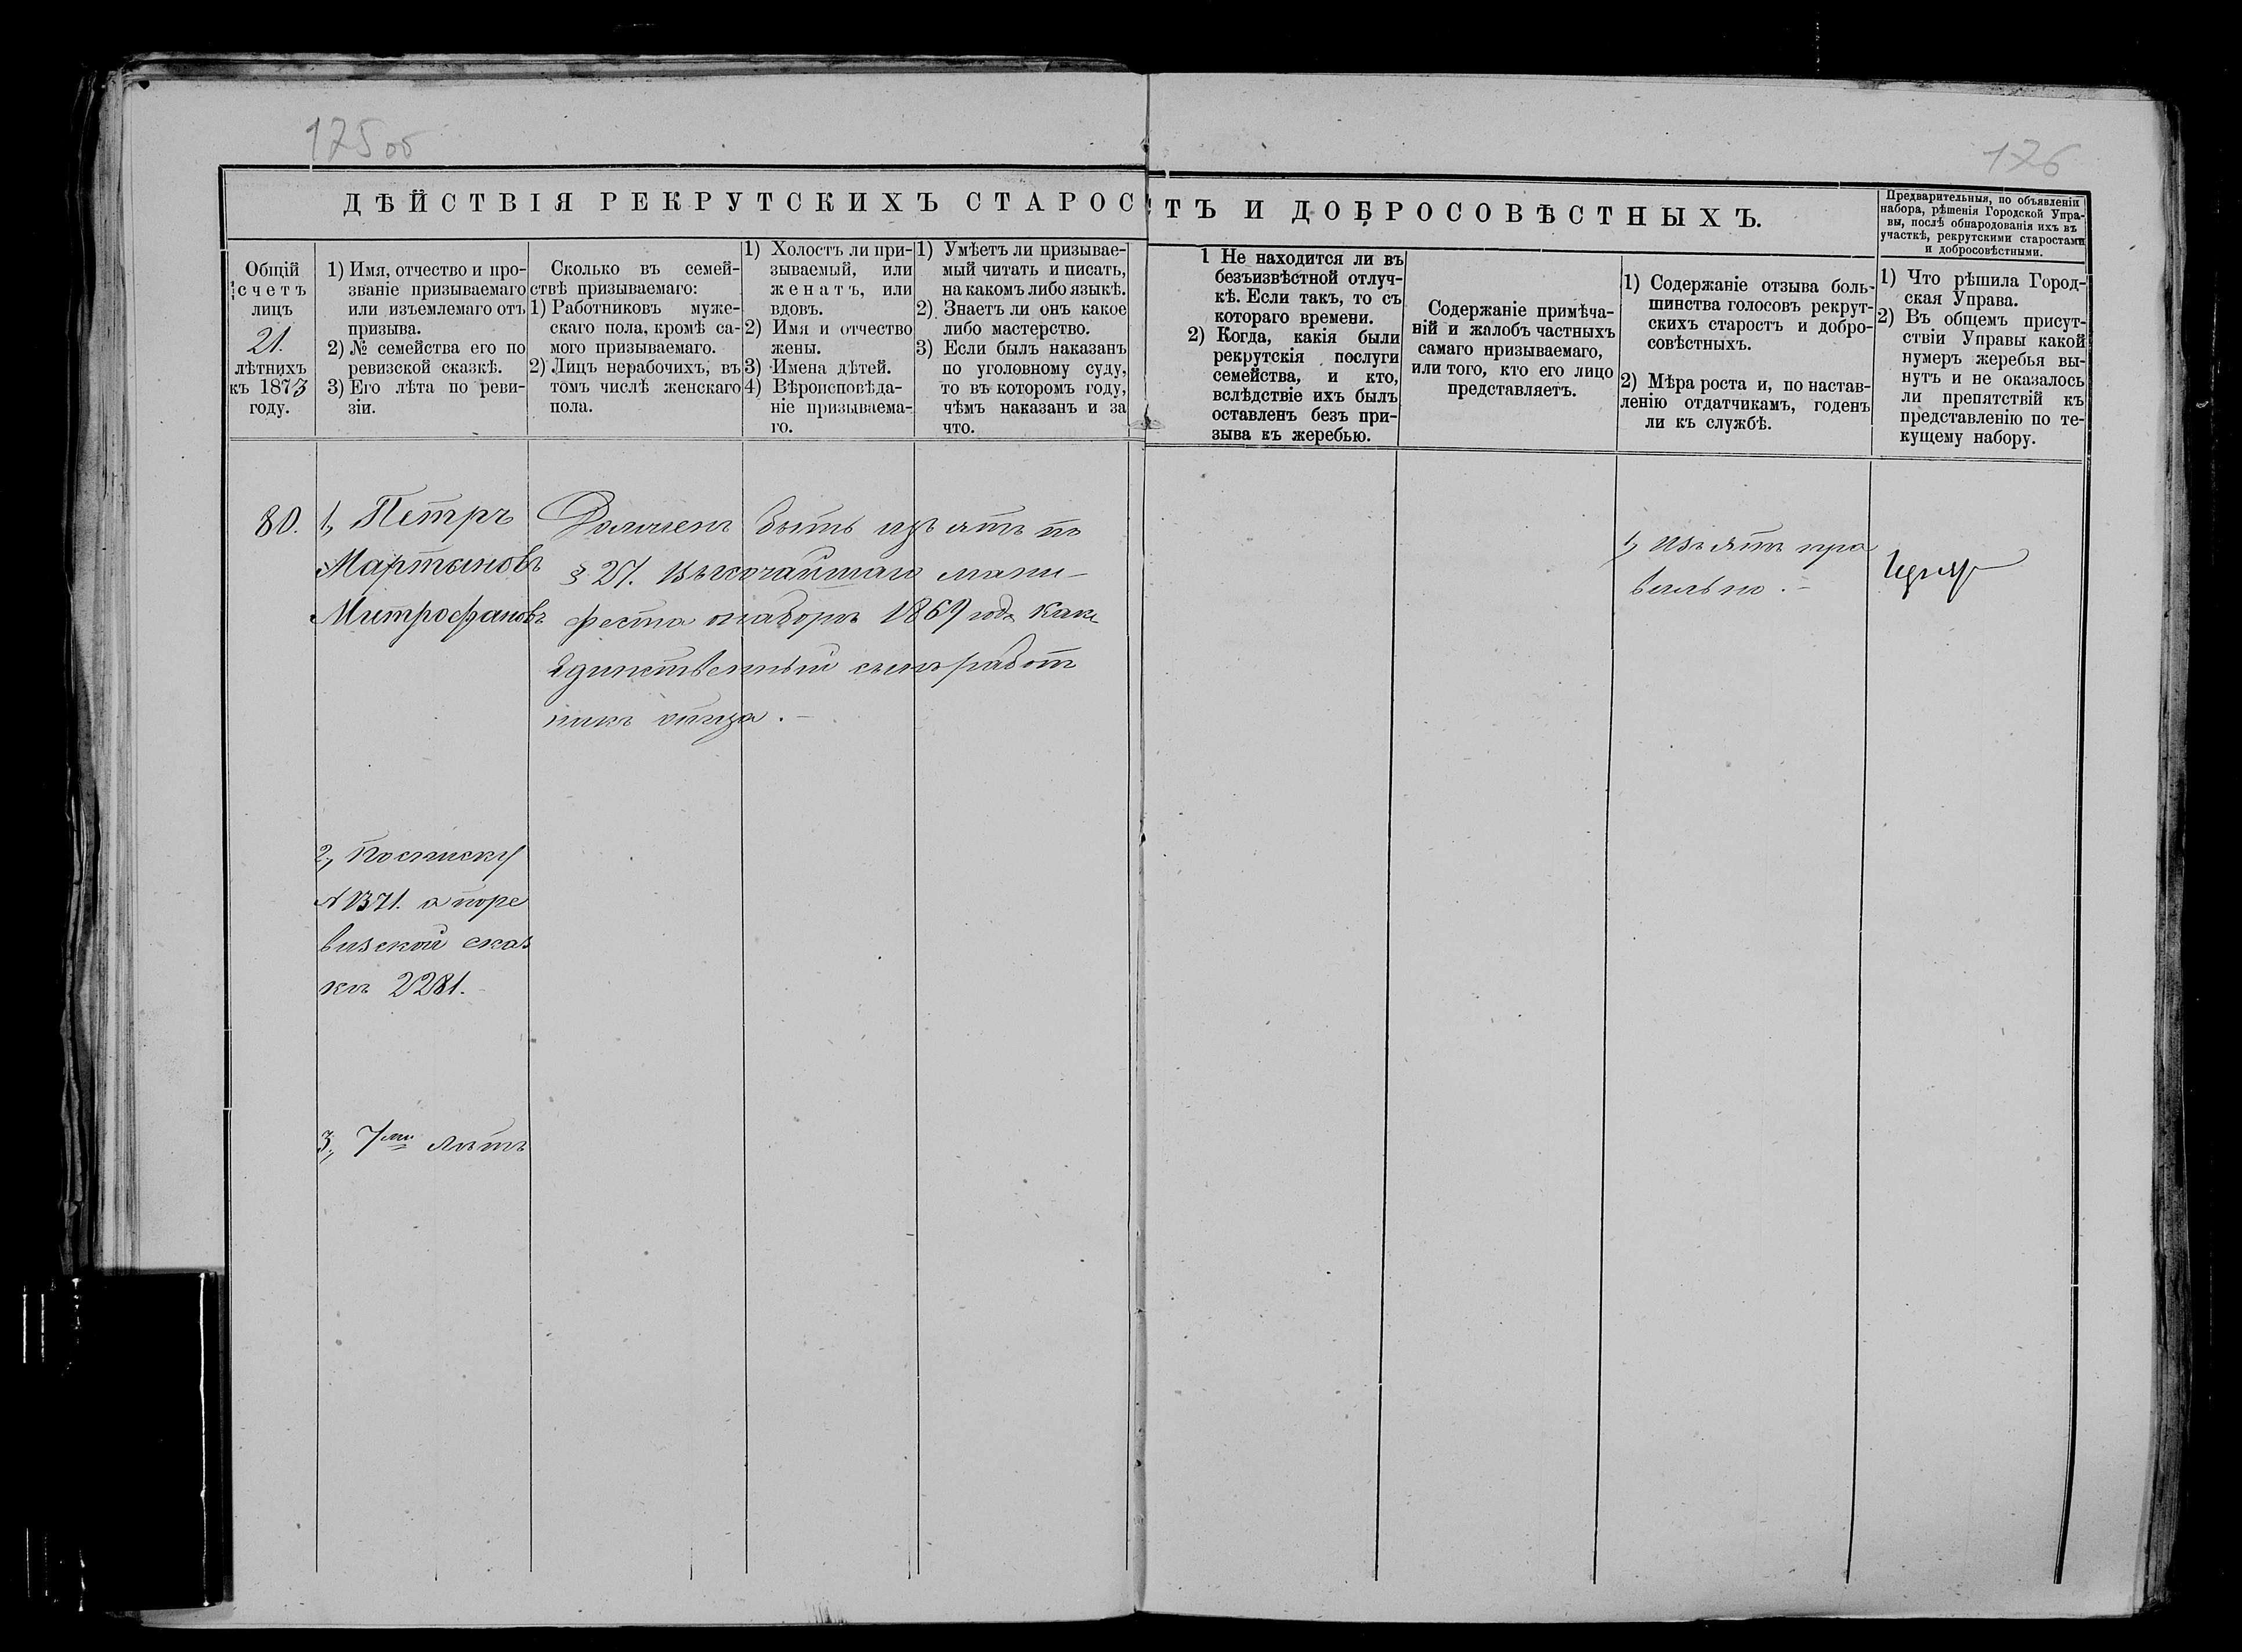 175 об
176
ДѢЙСТВІЯ РЕКРУТСКИХЪ СТАРОСТЪ И ДОБРОСОВѢСТНЫХЪ.
Предварительныя, по объявленіи
набора, рѣшенія Городской Упра-
вы, послѣ обнародованія ихъ въ
участкѣ, рекрутскими старостами
и добросовѣстными.
Общій
счетъ
лицъ
21.
лѣтнихъ
къ 1873
году.
1) Имя, отчество и про-
званіе призываемаго
или изъемлемаго отъ
призыва.
2) № семейства его по
ревизской сказкѣ.
3) Его лѣта по реви-
зіи.
Сколько въ семей-
ствѣ призываемаго:
1) Работниковъ муже-
скаго пола, кромѣ са-
мого призываемаго.
2) Лицъ нерабочихъ, въ
томъ числѣ женскаго
пола.
1) Холостъ ли при-
зываемый, или
женатъ, или
вдовъ.
2) Имя и отчество
жены.
3) Имена дѣтей.
4) Вѣроисповѣда-
ніе призываема-
го.
1) Умѣетъ ли призывае-
мый читать и писать,
на какомъ либо языкѣ.
2) Знаетъ ли онъ какое
либо мастерство.
3) Если былъ наказанъ
по уголовному суду,
то въ которомъ году,
чѣмъ наказанъ и за
что.
1 Не находится ли въ
безъизвѣстной отлуч-
кѣ. Если такъ, то съ
котораго времени.
2) Когда, какія были
рекрутскія послуги
семейства, и кто,
вслѣдствіе ихъ былъ
оставленъ безъ при-
зыва къ жеребью.
Содержаніе примѣча-
ній и жалобъ частныхъ
самаго призываемаго,
или того, кто его лицо
представляетъ.
1) Содержаніе отзыва боль-
шинства голосовъ рекрут-
скихъ старостъ и добро-
совѣстныхъ.
2) Мѣра роста и, по настав-
ленію отдатчикамъ, годенъ
ли къ службѣ.
1) Что рѣшила Город-
ская Управа.
2) Въ общемъ присут-
ствіи Управы какой
нумеръ жеребья вы-
нутъ и не оказалось
ли препятствій къ
представленію по те-
кущему набору.
80.
1, Петръ
Мартыновъ
Митрофановъ
Долженъ быть изъятъ по
§ 27. Высочайшаго мани-
феста о наборѣ 1869 года какъ
единственный сынъ работ
никъ отца.
2, По списку
№ 1371. а по ре
визской сказ
кѣ 2281.
3, 7ми лѣтъ
1, Изъятъ пра
вильно.